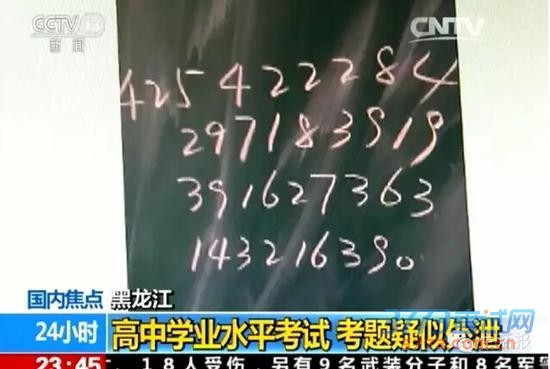 CCTV 13
新闻
CNTV
425 4222284
297183919
391627363
143216390
国内焦点 黑龙江
24小时 高中学业水平考试 考题疑似外泄
23:45 18人受伤，另有9名武装分子和8名军